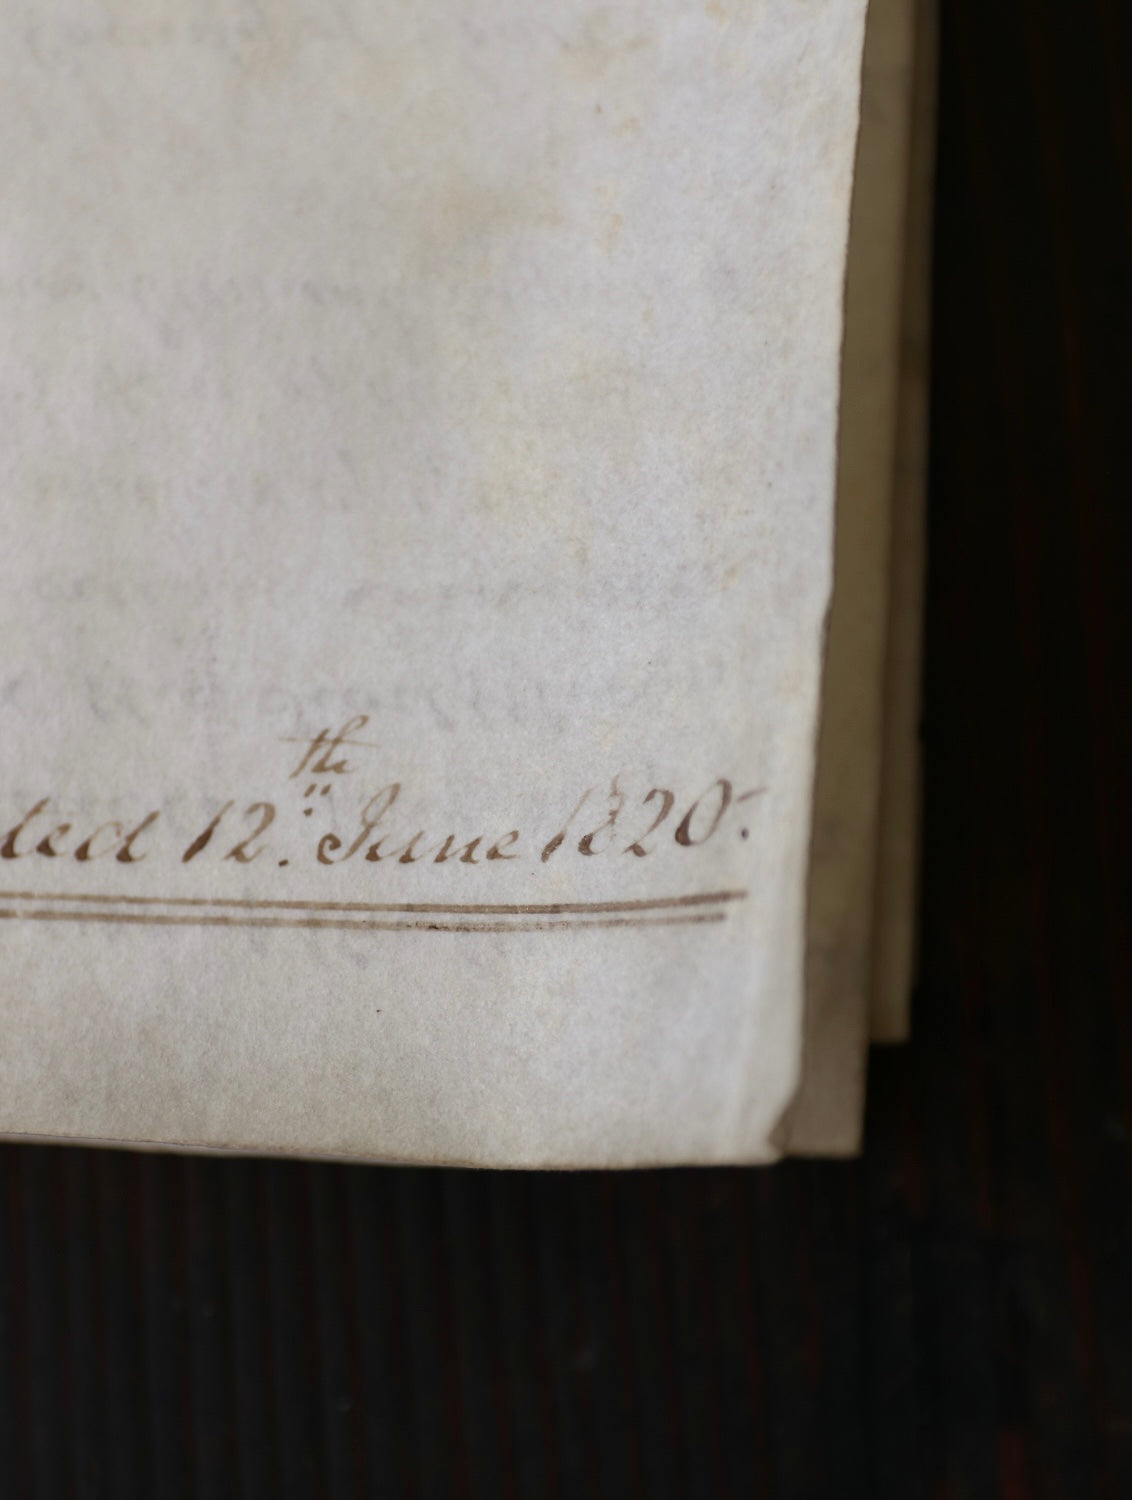 ted 12.th June 1820.